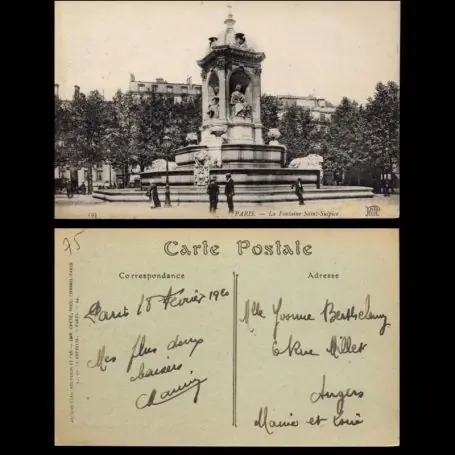 PARIS. — La Fontaine Saint-Sulpice
ND
75
Carte Postale
Correspondance
Adresse
Paris 18 Fevrier 1920
Mes plus doux
baisers
Mlle Yvonne Berthelemy
6 Rue Millet
Angers
Maine et Loire